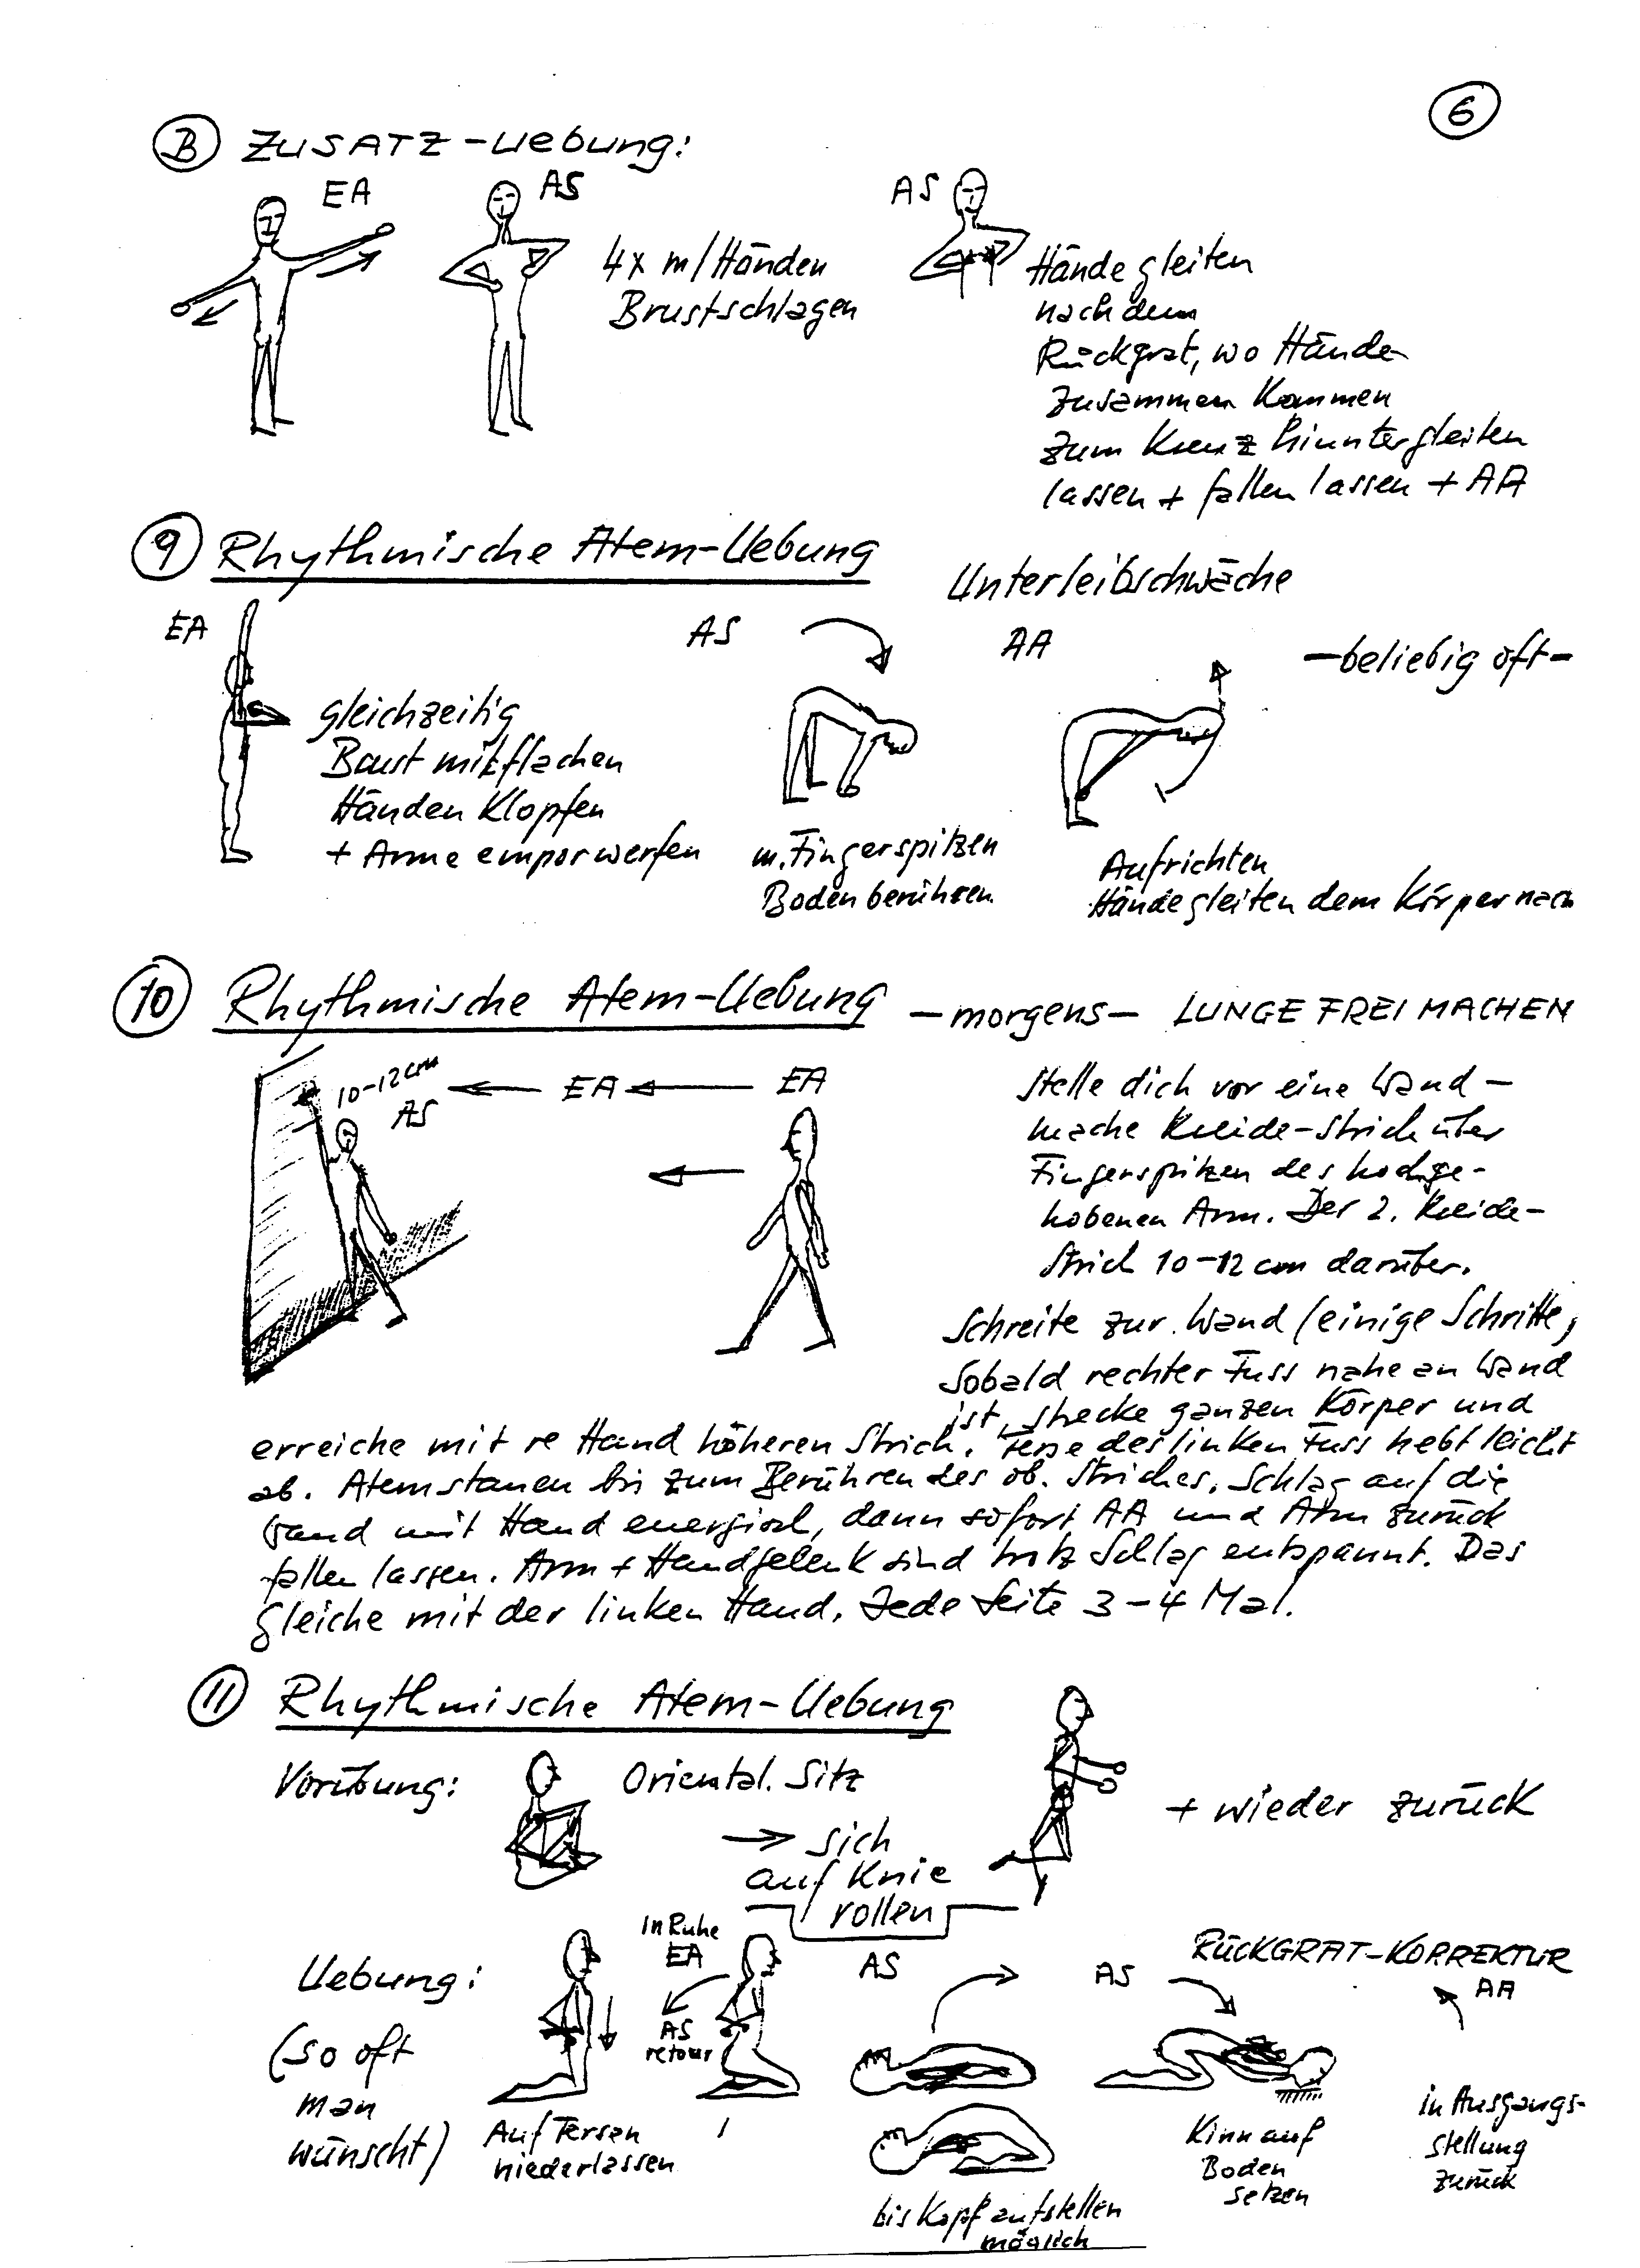 6
B ZUSATZ-Uebung:
EA
AS
4x m/Händen
Brustschlagen
AS
Hände gleiten
nach dem
Rückgrat, wo Hände
zusammen kommen
zum Kreuz hinuntergleiten
lassen + fallen lassen + AA
9 Rhythmische Atem-Uebung
Unterleibschwäche
EA
gleichzeitig
Brust mit flachen
Händen Klopfen
+ Arme emporwerfen
AS
m. Fingerspitzen
Boden berühren
AA
-beliebig oft-
Aufrichten
Hände gleiten dem Körper nach
10 Rhythmische Atem-Uebung -morgens- LUNGE FREI MACHEN
10-12cm
AS
EA
EA
Stelle dich vor eine Wand -
mache Kreide-Strich über
Fingerspitzen des hochge-
hobenen Arm. Der 2. Kreide-
Strich 10-12 cm darüber.
Schreite zur Wand (einige Schritte,
Sobald rechter Fuss nahe an Wand
ist, strecke ganzen Körper und
erreiche mit re Hand höheren Strich. Ferse des linken Fuss hebt leicht
ab. Atemstauen bis zum Berühren des ob. Striches. Schlag auf die
Wand mit Hand energisch, dann sofort AA und Arm zurück
fallen lassen. Arm + Handgelenk sind trotz Schlag entspannt. Das
Gleiche mit der linken Hand. Jede Seite 3-4 Mal.
11 Rhythmische Atem-Uebung
Vorübung:
Oriental. Sitz
→ sich
auf Knie
rollen
+ wieder zurück
Uebung:
(so oft
man
wünscht)
Auf Fersen
niederlassen
In Ruhe
EA
AS
retour
AS
bis Kopf aufstellen
möglich
AS
Kinn auf
Boden
setzen
RÜCKGRAT-KORREKTUR
AA
in Ausgangs-
stellung
zurück